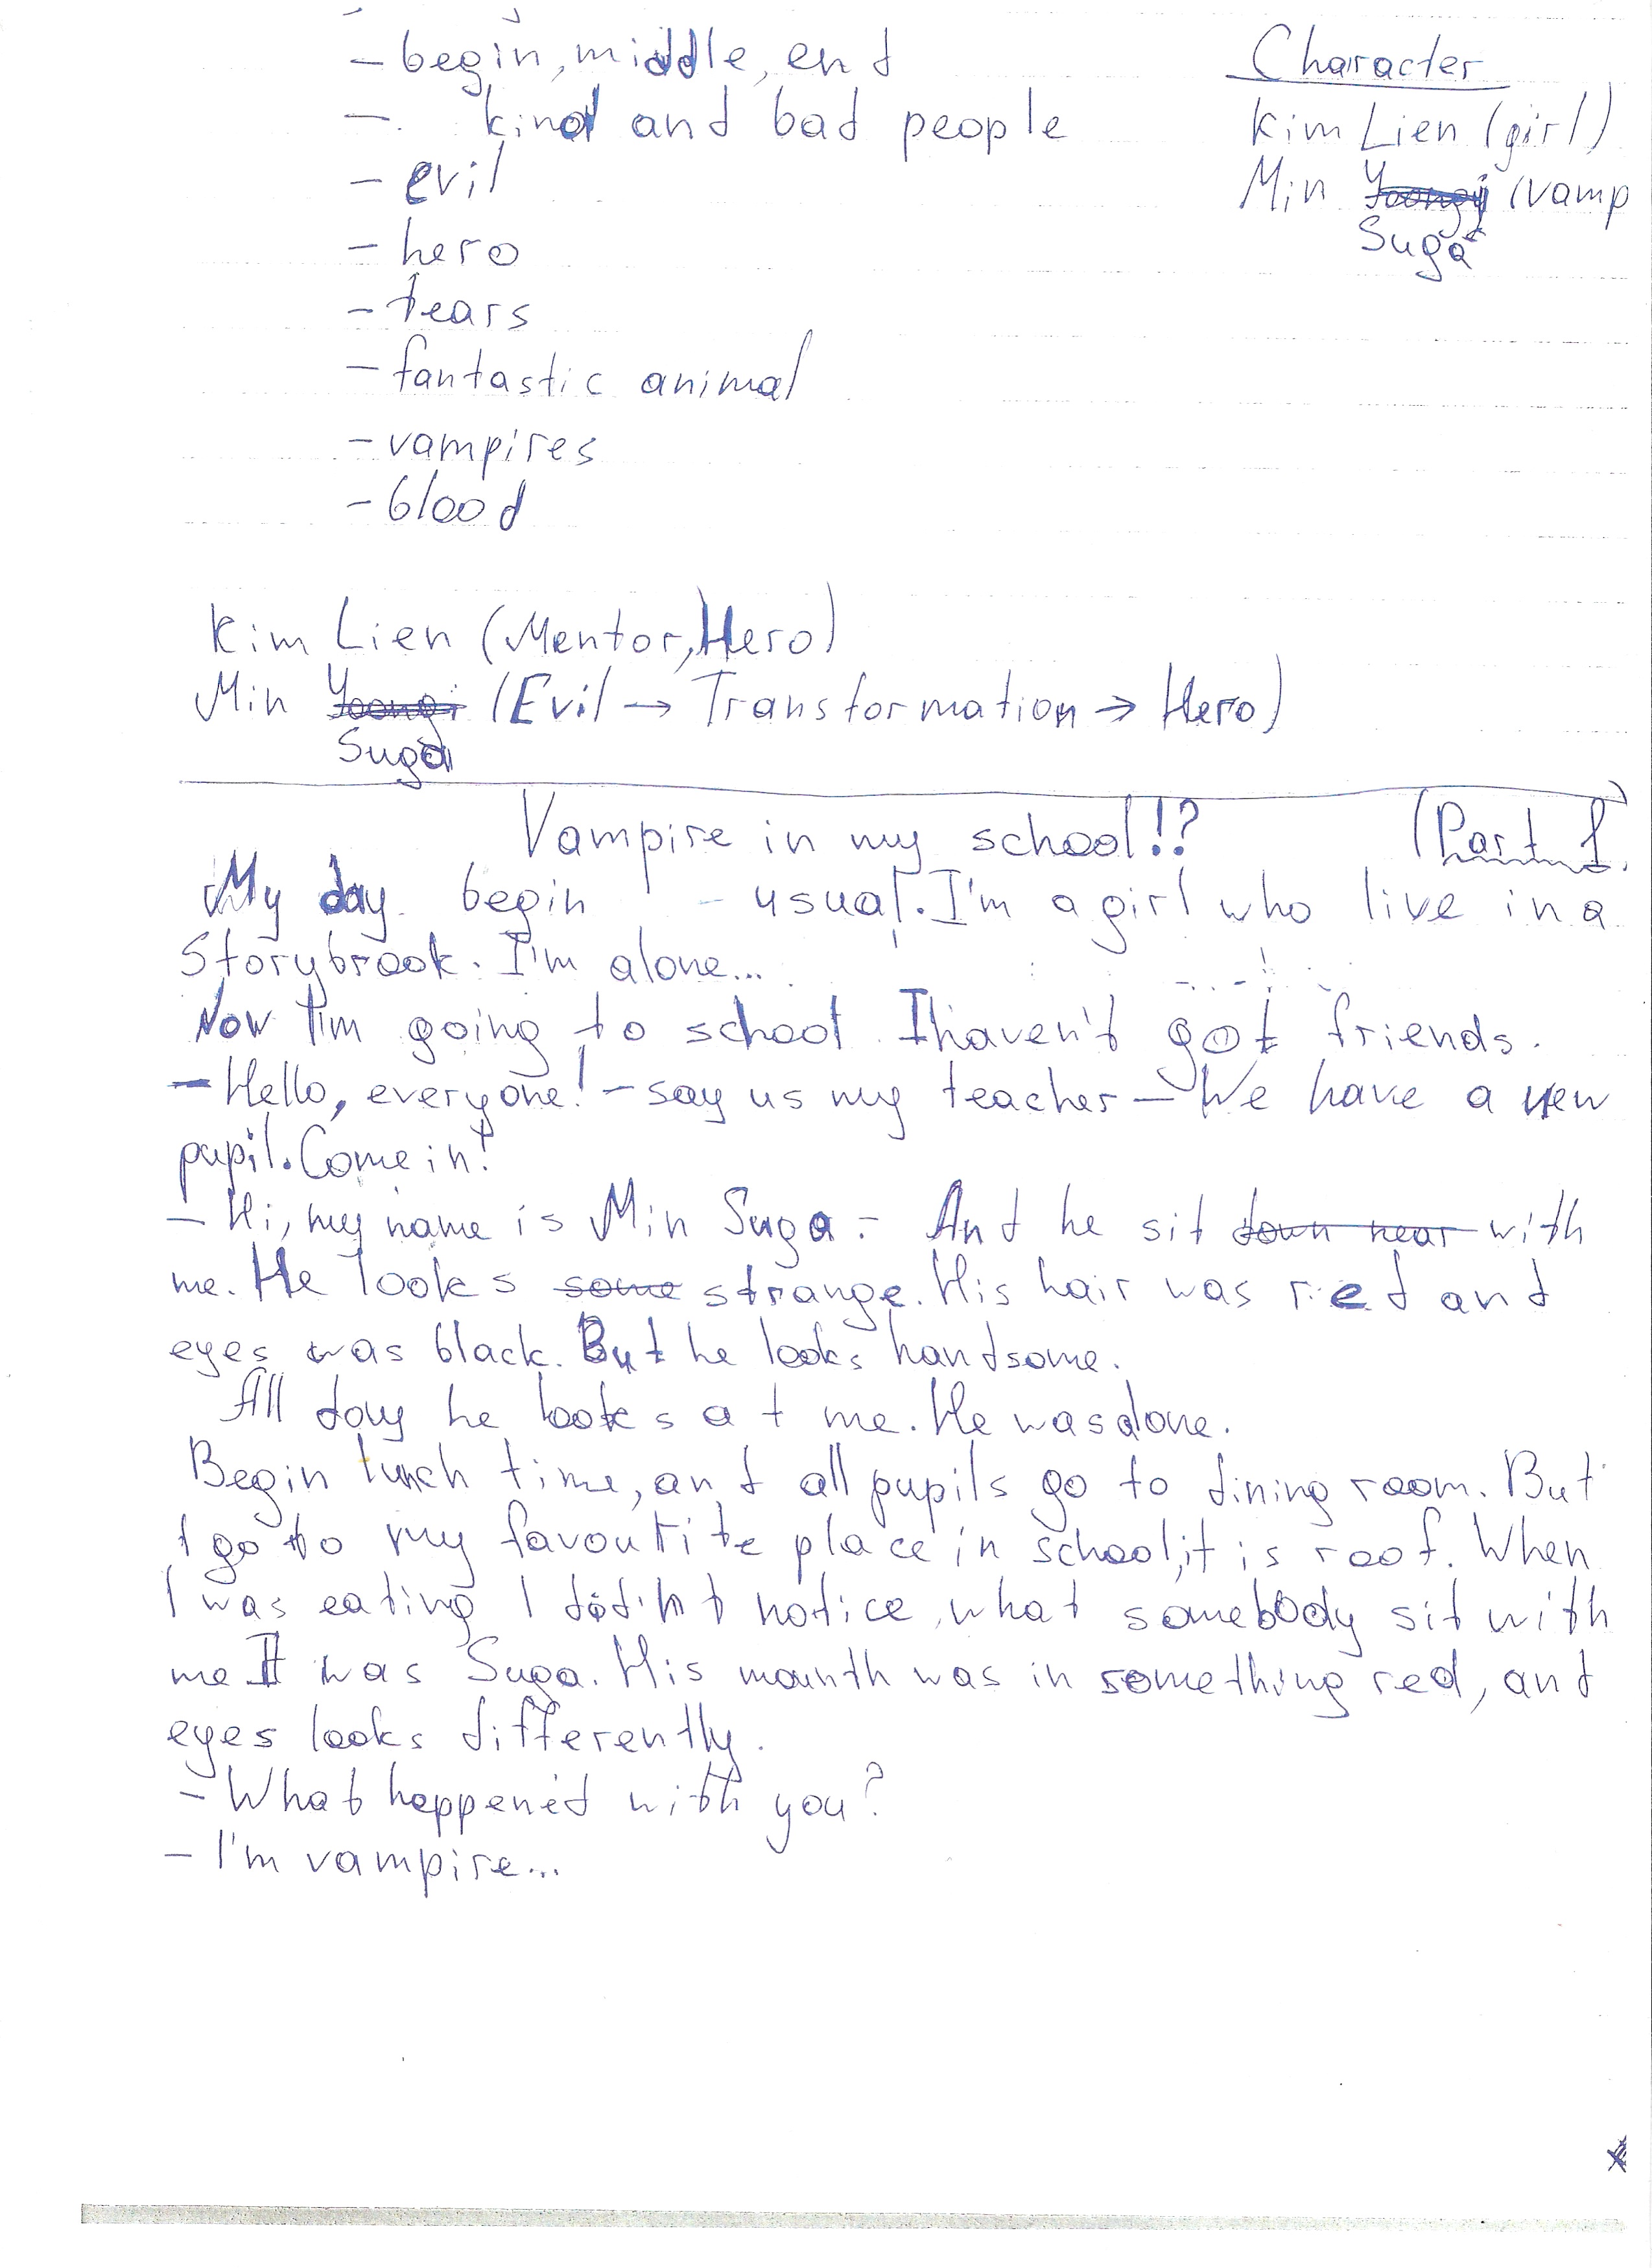 - begin, middle, end
Character
- kind and bad people
Kim Lien (girl)
- evil
Min Yoongi (vamp
Suga
- hero
- tears
- fantastic animal
- vampires
- blood
Kim Lien (Mentor, Hero)
Min Yoongi (Evil → Transformation → Hero)
Suga
Vampire in my school!? (Part 1.
My day begin usual. I'm a girl who live in a
Storybrook. I'm alone...
Now I'm going to school I haven't got friends.
- Hello, everyone! - say us my teacher - We have a new
pupil. Come in!
- Hi, my name is Min Suga. - And he sit down near with
me. He looks some strange. His hair was red and
eyes was black. But he looks handsome.
All day he looks at me. He was alone.
Begin lunch time, and all pupils go to dining room. But
I go to my favourite place in school, it is roof. When
I was eating I didn't notice, what somebody sit with
me It was Suga. His mounth was in something red, and
eyes looks differently.
- What happened with you?
- I'm vampire...